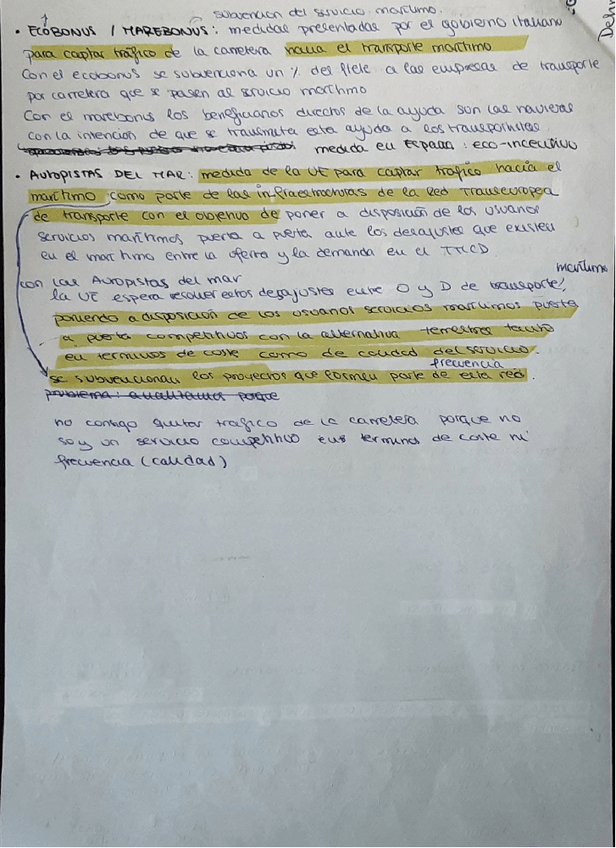 subvención del servicio marítimo.
• ECOBONUS / MAREBONUS: medidas presentadas por el gobierno italiano
para captar tráfico de la carretera hacia el transporte marítimo
Con el ecobonus se subvenciona un % del flete a las empresas de transporte
por carretera que se pasen al servicio marítimo
Con el marebonus los beneficiarios directos de la ayuda son las navieras
con la intención de que se transmita esta ayuda a los transportistas
medida en España: eco-incentivo
• AUTOPISTAS DEL MAR: medida de la UE para captar tráfico hacia el
marítimo como parte de las infraestructuras de la Red Transeuropea
de transporte con el objetivo de poner a disposición de los usuarios
servicios marítimos puerta a puerta ante los desajustes que existen
en el marítimo entre la oferta y la demanda en el TMCD
con las Autopistas del mar
la UE espera resolver estos desajustes entre O y D de transporte marítimo
poniendo a disposición de los usuarios servicios marítimos puerta
a puerta competitivos con la alternativa terrestres tanto
en términos de coste como de calidad del servicio.
frecuencia
se subvencionan los proyectos que formen parte de esta red.
problema: analizamos porque
no consigo quitar tráfico de la carretera porque no
soy un servicio competitivo en términos de coste ni
frecuencia (calidad)